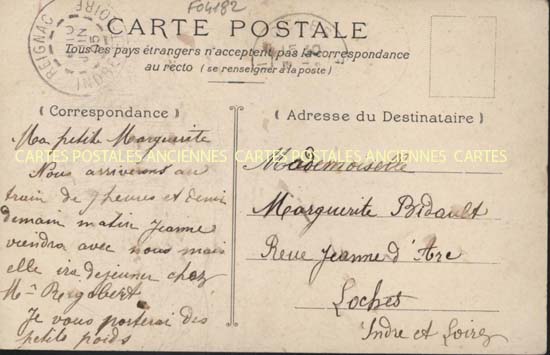 F04182
REIGNAC
INDRE
LOIRE
CARTE POSTALE
Tous les pays étrangers n'acceptent pas la correspondance
au recto (se renseigner à la poste)
( Correspondance )
Ma petite Marguerite
Nous arriverons au
train de 7 heures et demi
demain matin Jeanne
viendra avec nous mais
elle ira dejeuner chez
Me Rigobert
Je vous porterai des
petits poids
( Adresse du Destinataire )
Mademoiselle
Marguerite Bidault
Rue Jeanne d'Arc
Loches
Indre et Loire
CARTES POSTALES ANCIENNES CARTES POSTALES ANCIENNES CARTES